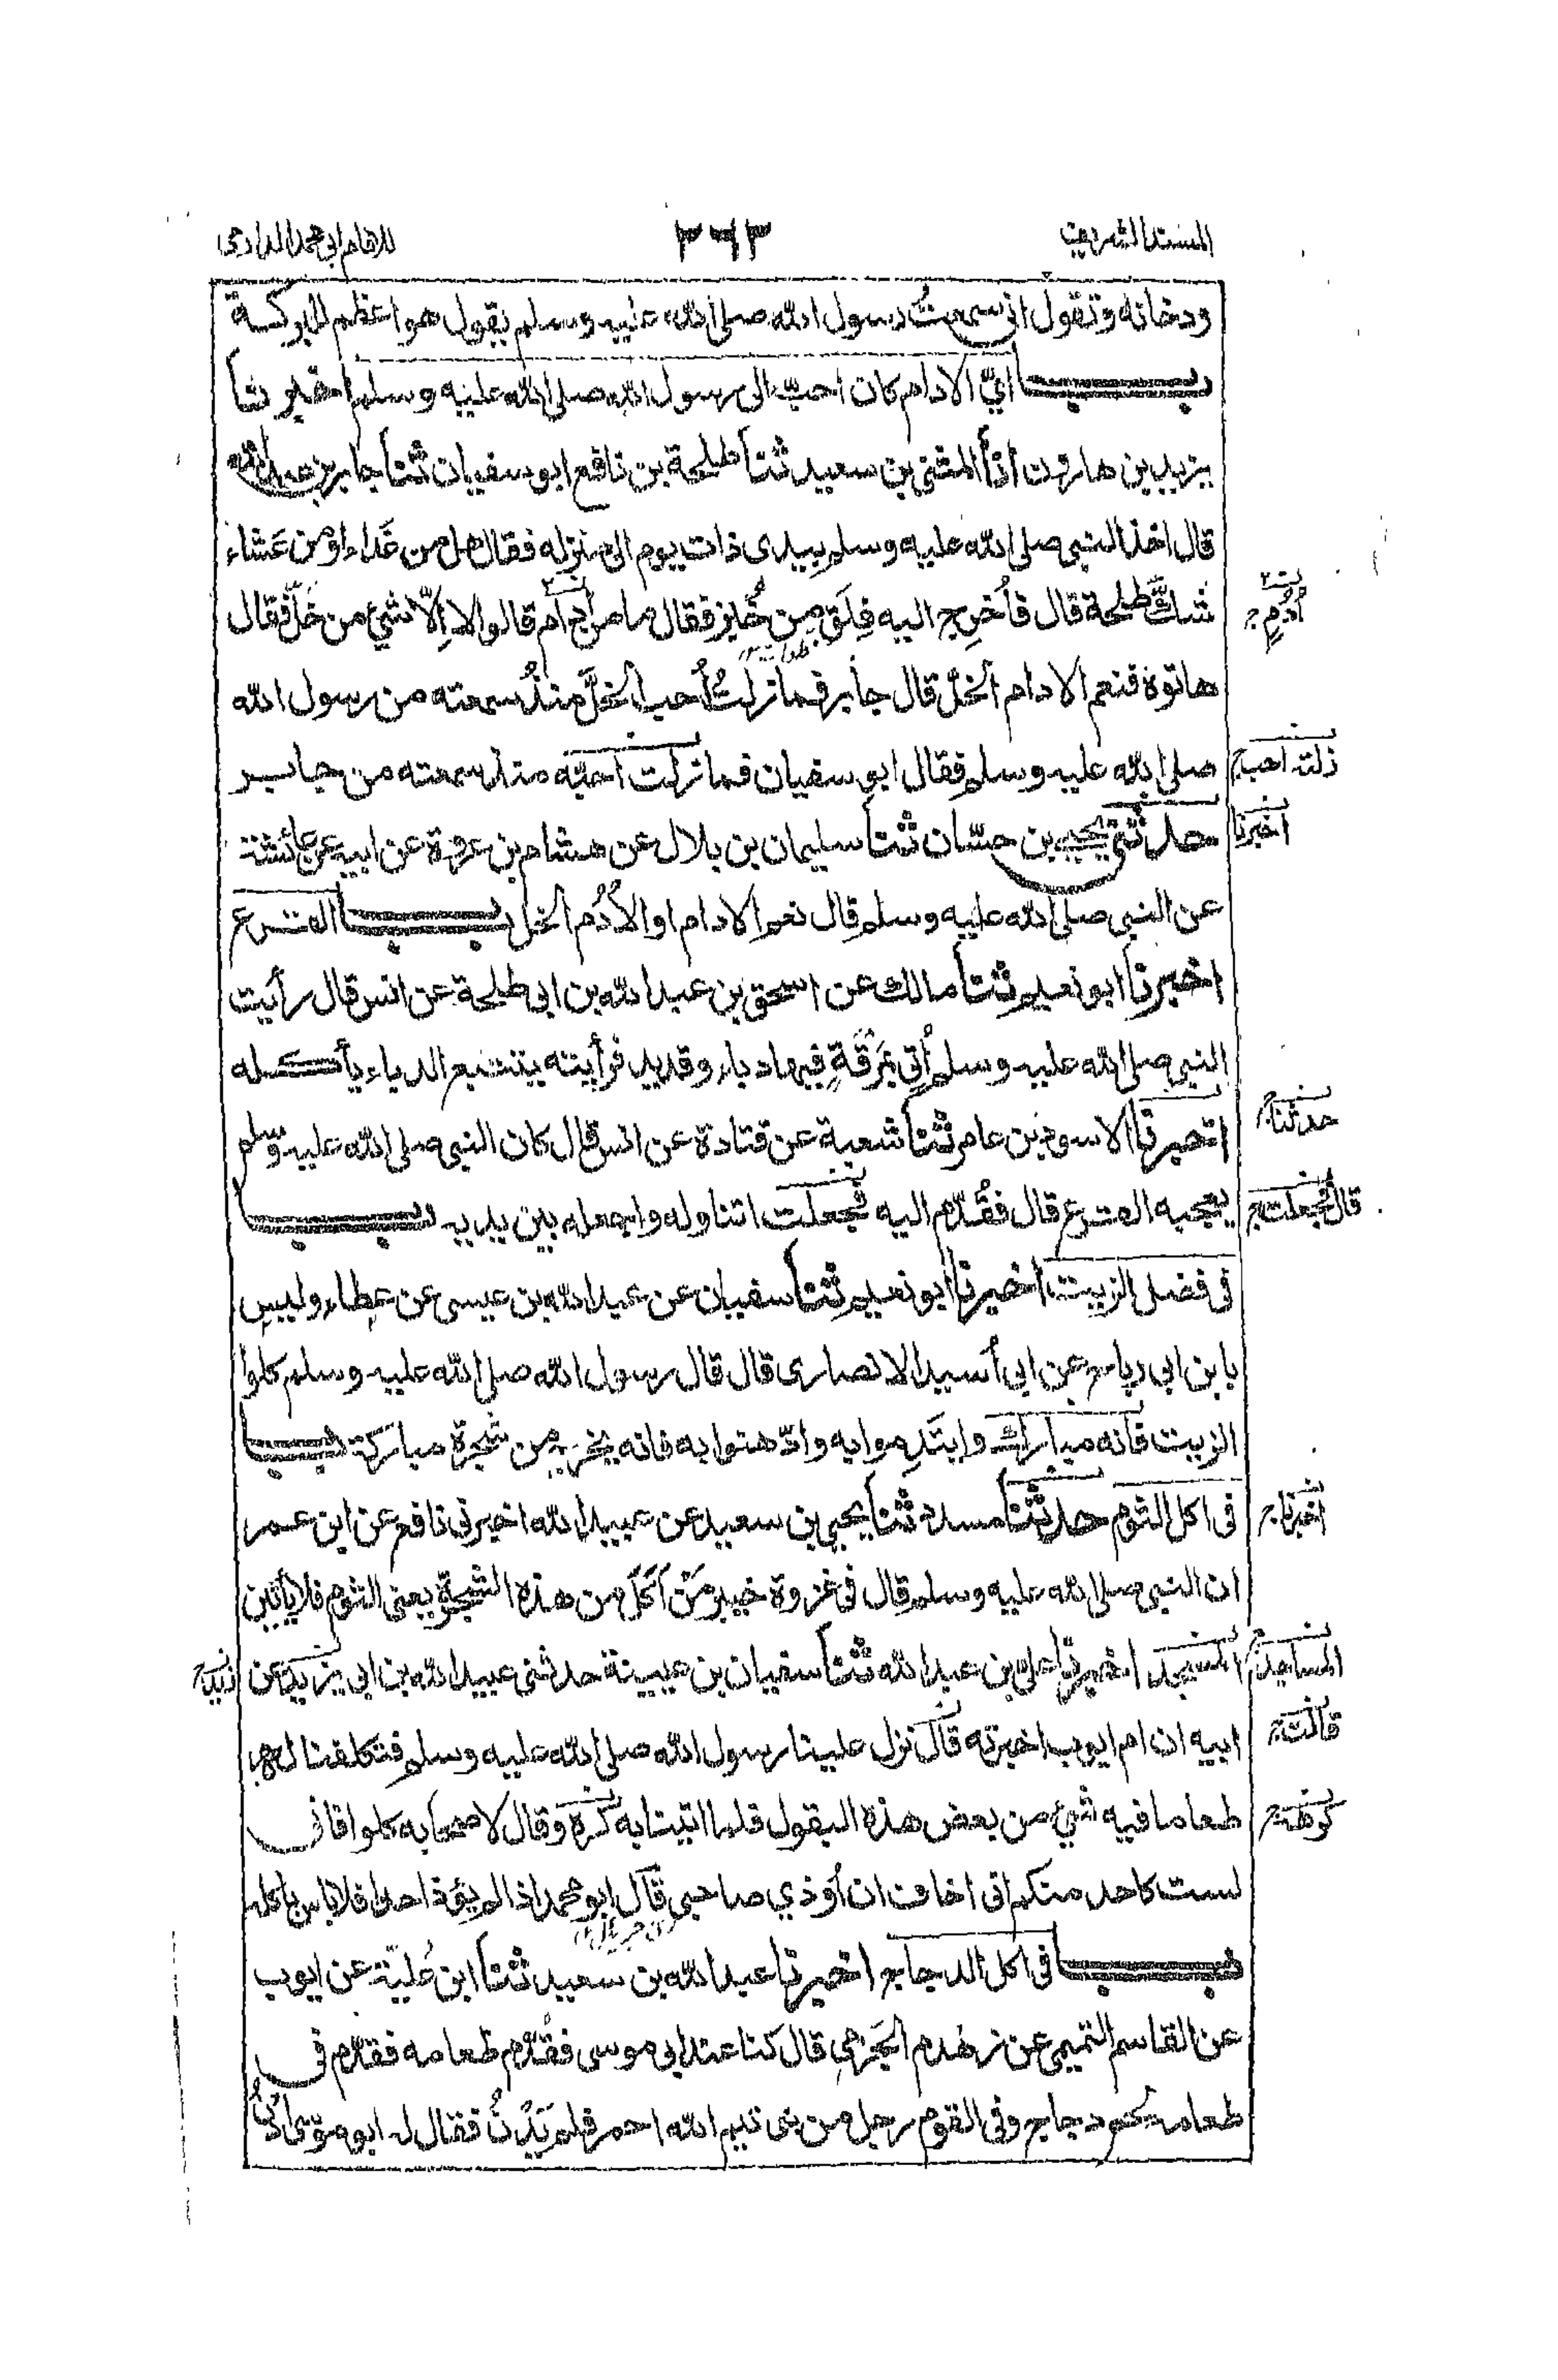 المسند الشريف ٣٦٣ للامام ابى محمد الدارمى
ودخانه وتقول انى سمعت رسول الله صلى الله عليه وسلم يقول هو اعظم للبركة
باب اىّ الادام كان احبّ الى رسول الله صلى الله عليه وسلم اخبرنا
يزيد بن هارون انا المثنى بن سعيد ثنا طلحة بن نافع ابو سفيان ثنا جابر بن عبد الله
قال اخذ النبى صلى الله عليه وسلم بيدى ذات يوم الى منزله فقال هل من غَداء او من عَشاء
شكّ طلحة قال فأُخرِج اليه فِلَق مِن خُبز فقال ما من ادام قالوا لا اِلّا شئ من خَلّ فقال
اُدُمٍ
هاتوه فنعم الادام الخلّ قال جابر فما زلتُ اُحب الخلّ منذُ سمعته من رسول الله
صلى الله عليه وسلم فقال ابو سفيان فما زلت احبّه منذ سمعته من جابر
زلت احب
حدثنى يحيى بن حسّان ثنا سليمان بن بلال عن هشام بن عروة عن ابيه عن عائشة
اخبرنا
عن النبى صلى الله عليه وسلم قال نعم الادام او الاُدُم الخل باب القرع
اخبرنا ابو نعيم ثنا مالك عن اسحق بن عبد الله بن ابى طلحة عن انس قال رأيت
النبى صلى الله عليه وسلم اُتى بمَرَقَةٍ فيها دباء وقديد فرأيته يتتبع الدباء يأكله
اخبرنا الاسود بن عامر ثنا شعبة عن قتادة عن انس قال كان النبى صلى الله عليه وسلم
حدثنا
يعجبه القرع قال فقُدّم اليه فجعلت اتناوله واجعله بين يديه باب
قال فجعلت
فى فضل الزيت اخبرنا ابو نعيم ثنا سفيان عن عبد الله بن عيسى عن عطاء وليس
بابن ابى رباح عن ابى اُسيد الانصارى قال قال رسول الله صلى الله عليه وسلم كلوا
الزيت فانه مبارك وايتَدِموا به وادّهنوا به فانه يخرج من شجرة مباركة باب
فى اكل الثوم حدثنا مسدد ثنا يحيى بن سعيد عن عبيد الله اخبرنى نافع عن ابن عمر
اخبرنا
ان النبى صلى الله عليه وسلم قال فى غزوة خيبر مَن اَكَلَ من هذه الشجرة يعنى الثوم فلا يأتين
المسجد اخبرنا على بن عبد الله ثنا سفيان بن عيينة حدثنى عبيد الله بن ابى يزيد عن
المساجد
ابيه ان ام ايوب اخبرته قال نزل علينا رسول الله صلى الله عليه وسلم فتكلفنا له
قالت
طعاما فيه شئ من بعض هذه البقول فلما اتيناه به كره وقال لاصحابه كلوا فانى
كرهه
لست كاحد منكم انى اخاف ان اُوذي صاحبى قال ابو محمد اذا لم يؤذ احدا فلا باس باكله
باب فى اكل الدجاج اخبرنا عبد الله بن سعيد ثنا ابن عُليّة عن ايوب
عن القاسم التميمى عن زهدم الجَرمى قال كنا عند ابى موسى فقُدّم طعامه فقدّم فى
طعامه لحم دجاج وفى القوم رجل من بنى تيم الله احمر فلم يَدْنُ فقال له ابو موسى اُدنُ